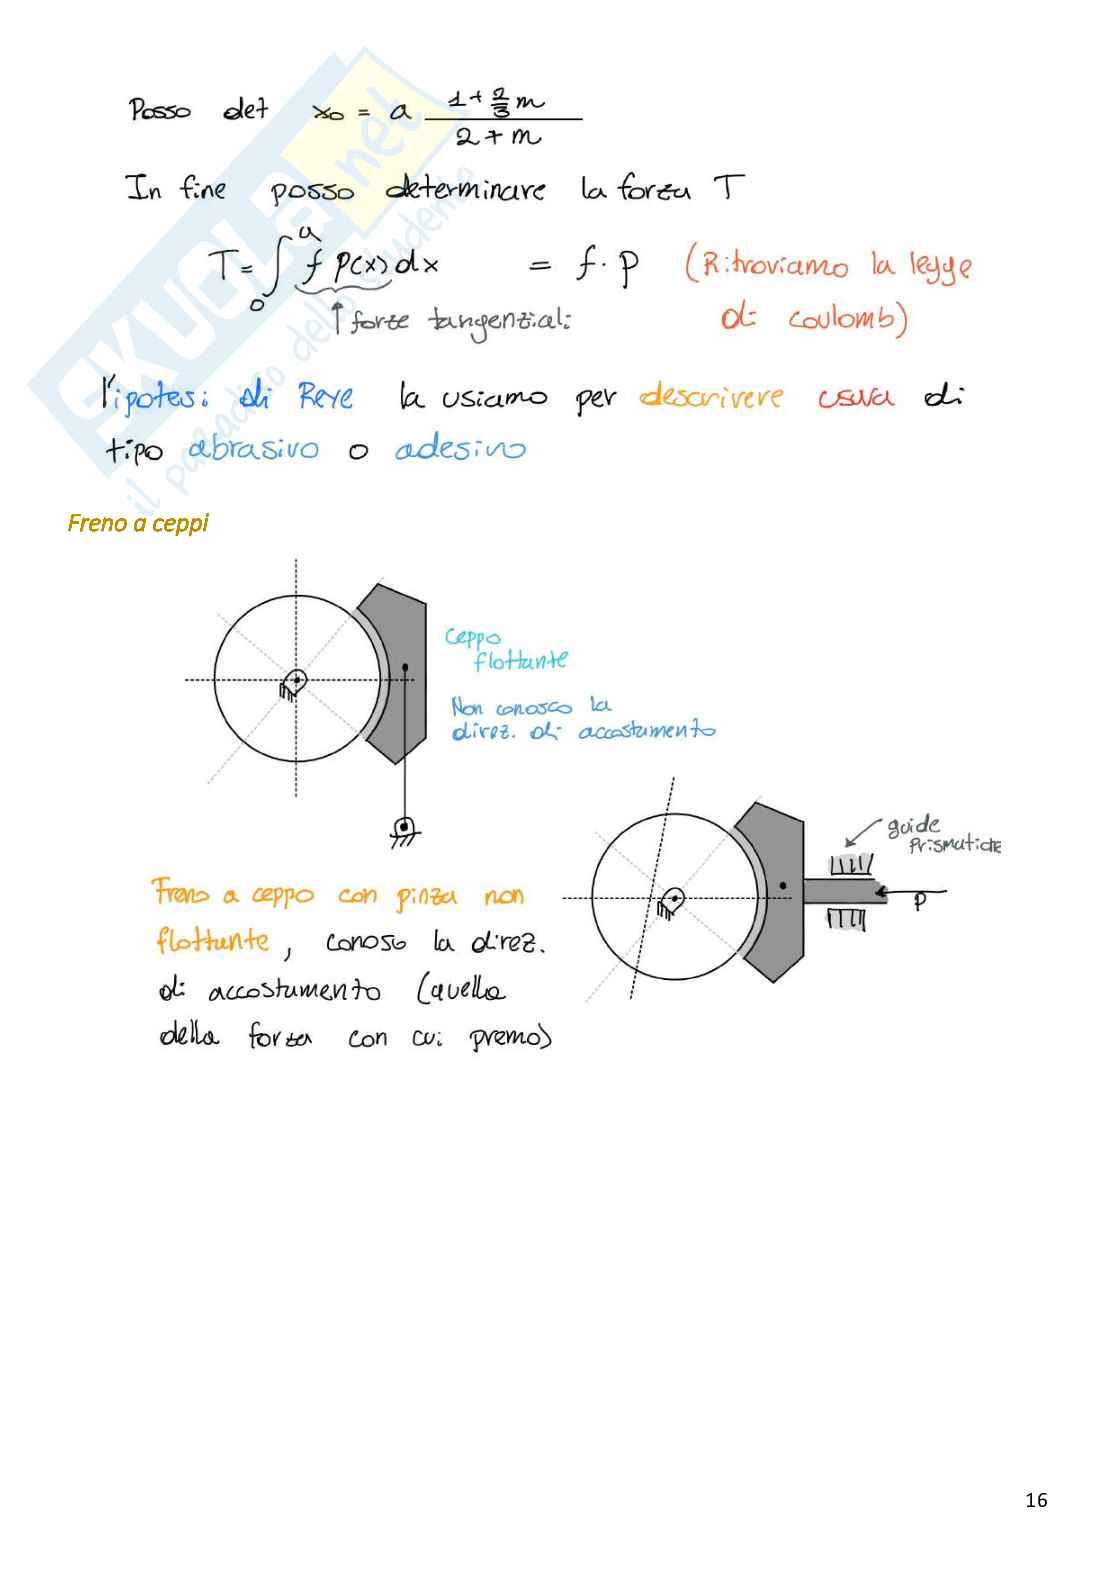 Posso det x0 = a (1 + 2/3 m) / (2 + m)
In fine posso determinare la forza T
T = ∫₀ᵃ f p(x) dx = f · P (Ritroviamo la legge
↑ forze tangenziali di coulomb)
l'ipotesi di Reye la usiamo per descrivere usura di
tipo abrasivo o adesivo
Freno a ceppi
Ceppo
flottante
Non conosco la
direz. di accostamento
guide
Prismatiche
P
Freno a ceppo con pinza non
flottante, conosco la direz.
di accostamento (quella
della forza con cui premo)
SKUOLA.net
il paradiso dello studente
16